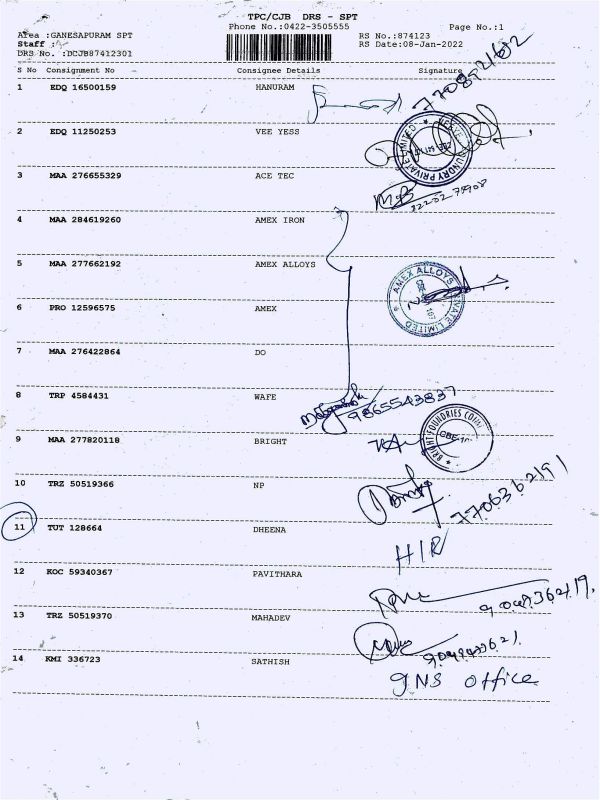 TPC/CJB DRS - SPT
Phone No.:0422-3505555
Page No.:1
Area :GANESAPURAM SPT
RS No.:874123
Staff :
RS Date:08-Jan-2022
DRS No. :DCJB87412301
S No Consignment No Consignee Details Signature
1 EDQ 16500159 HANURAM
2 EDQ 11250253 VEE YESS
3 MAA 276655329 ACE TEC
4 MAA 284619260 AMEX IRON
5 MAA 277662192 AMEX ALLOYS
AMEX ALLOYS PRIVATE LIMITED
6 PRO 12596575 AMEX
7 MAA 276422864 DO
8 TRP 4584431 WAFE
9865543837
9 MAA 277820118 BRIGHT
BRIGHT FOUNDRIES
10 TRZ 50519366 NP
7706362191
11 TUT 128664 DHEENA
HIR
12 KOC 59340367 PAVITHARA
13 TRZ 50519370 MAHADEV
14 KMI 336723 SATHISH
GNS office